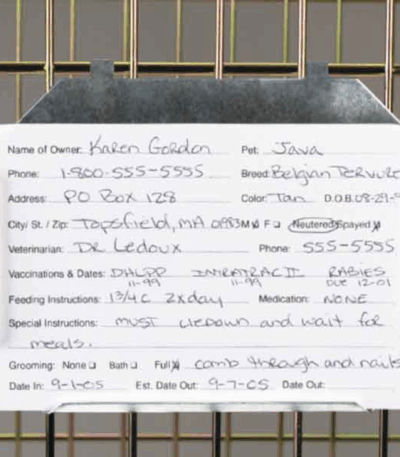 Name of Owner: Karen Gordon Pet: Java
Phone: 1-800-555-5555 Breed: Belgian Tervure
Address: PO Box 128 Color: Tan D.O.B. 08-29-9
City/ St. / Zip: Topsfield, MA 01983 M ☒ F ☐ Neutered Spayed ☒
Veterinarian: DR Ledoux Phone: 555-5555
Vaccinations & Dates: DHLPP INTRATRAC II RABIES
11-99 11-99 DUE 12-01
Feeding Instructions: 1 3/4 C 2x day Medication: NONE
Special Instructions: MUST liedown and wait for
meals.
Grooming: None ☐ Bath ☐ Full ☒ comb through and nails
Date In: 9-1-05 Est. Date Out: 9-7-05 Date Out: